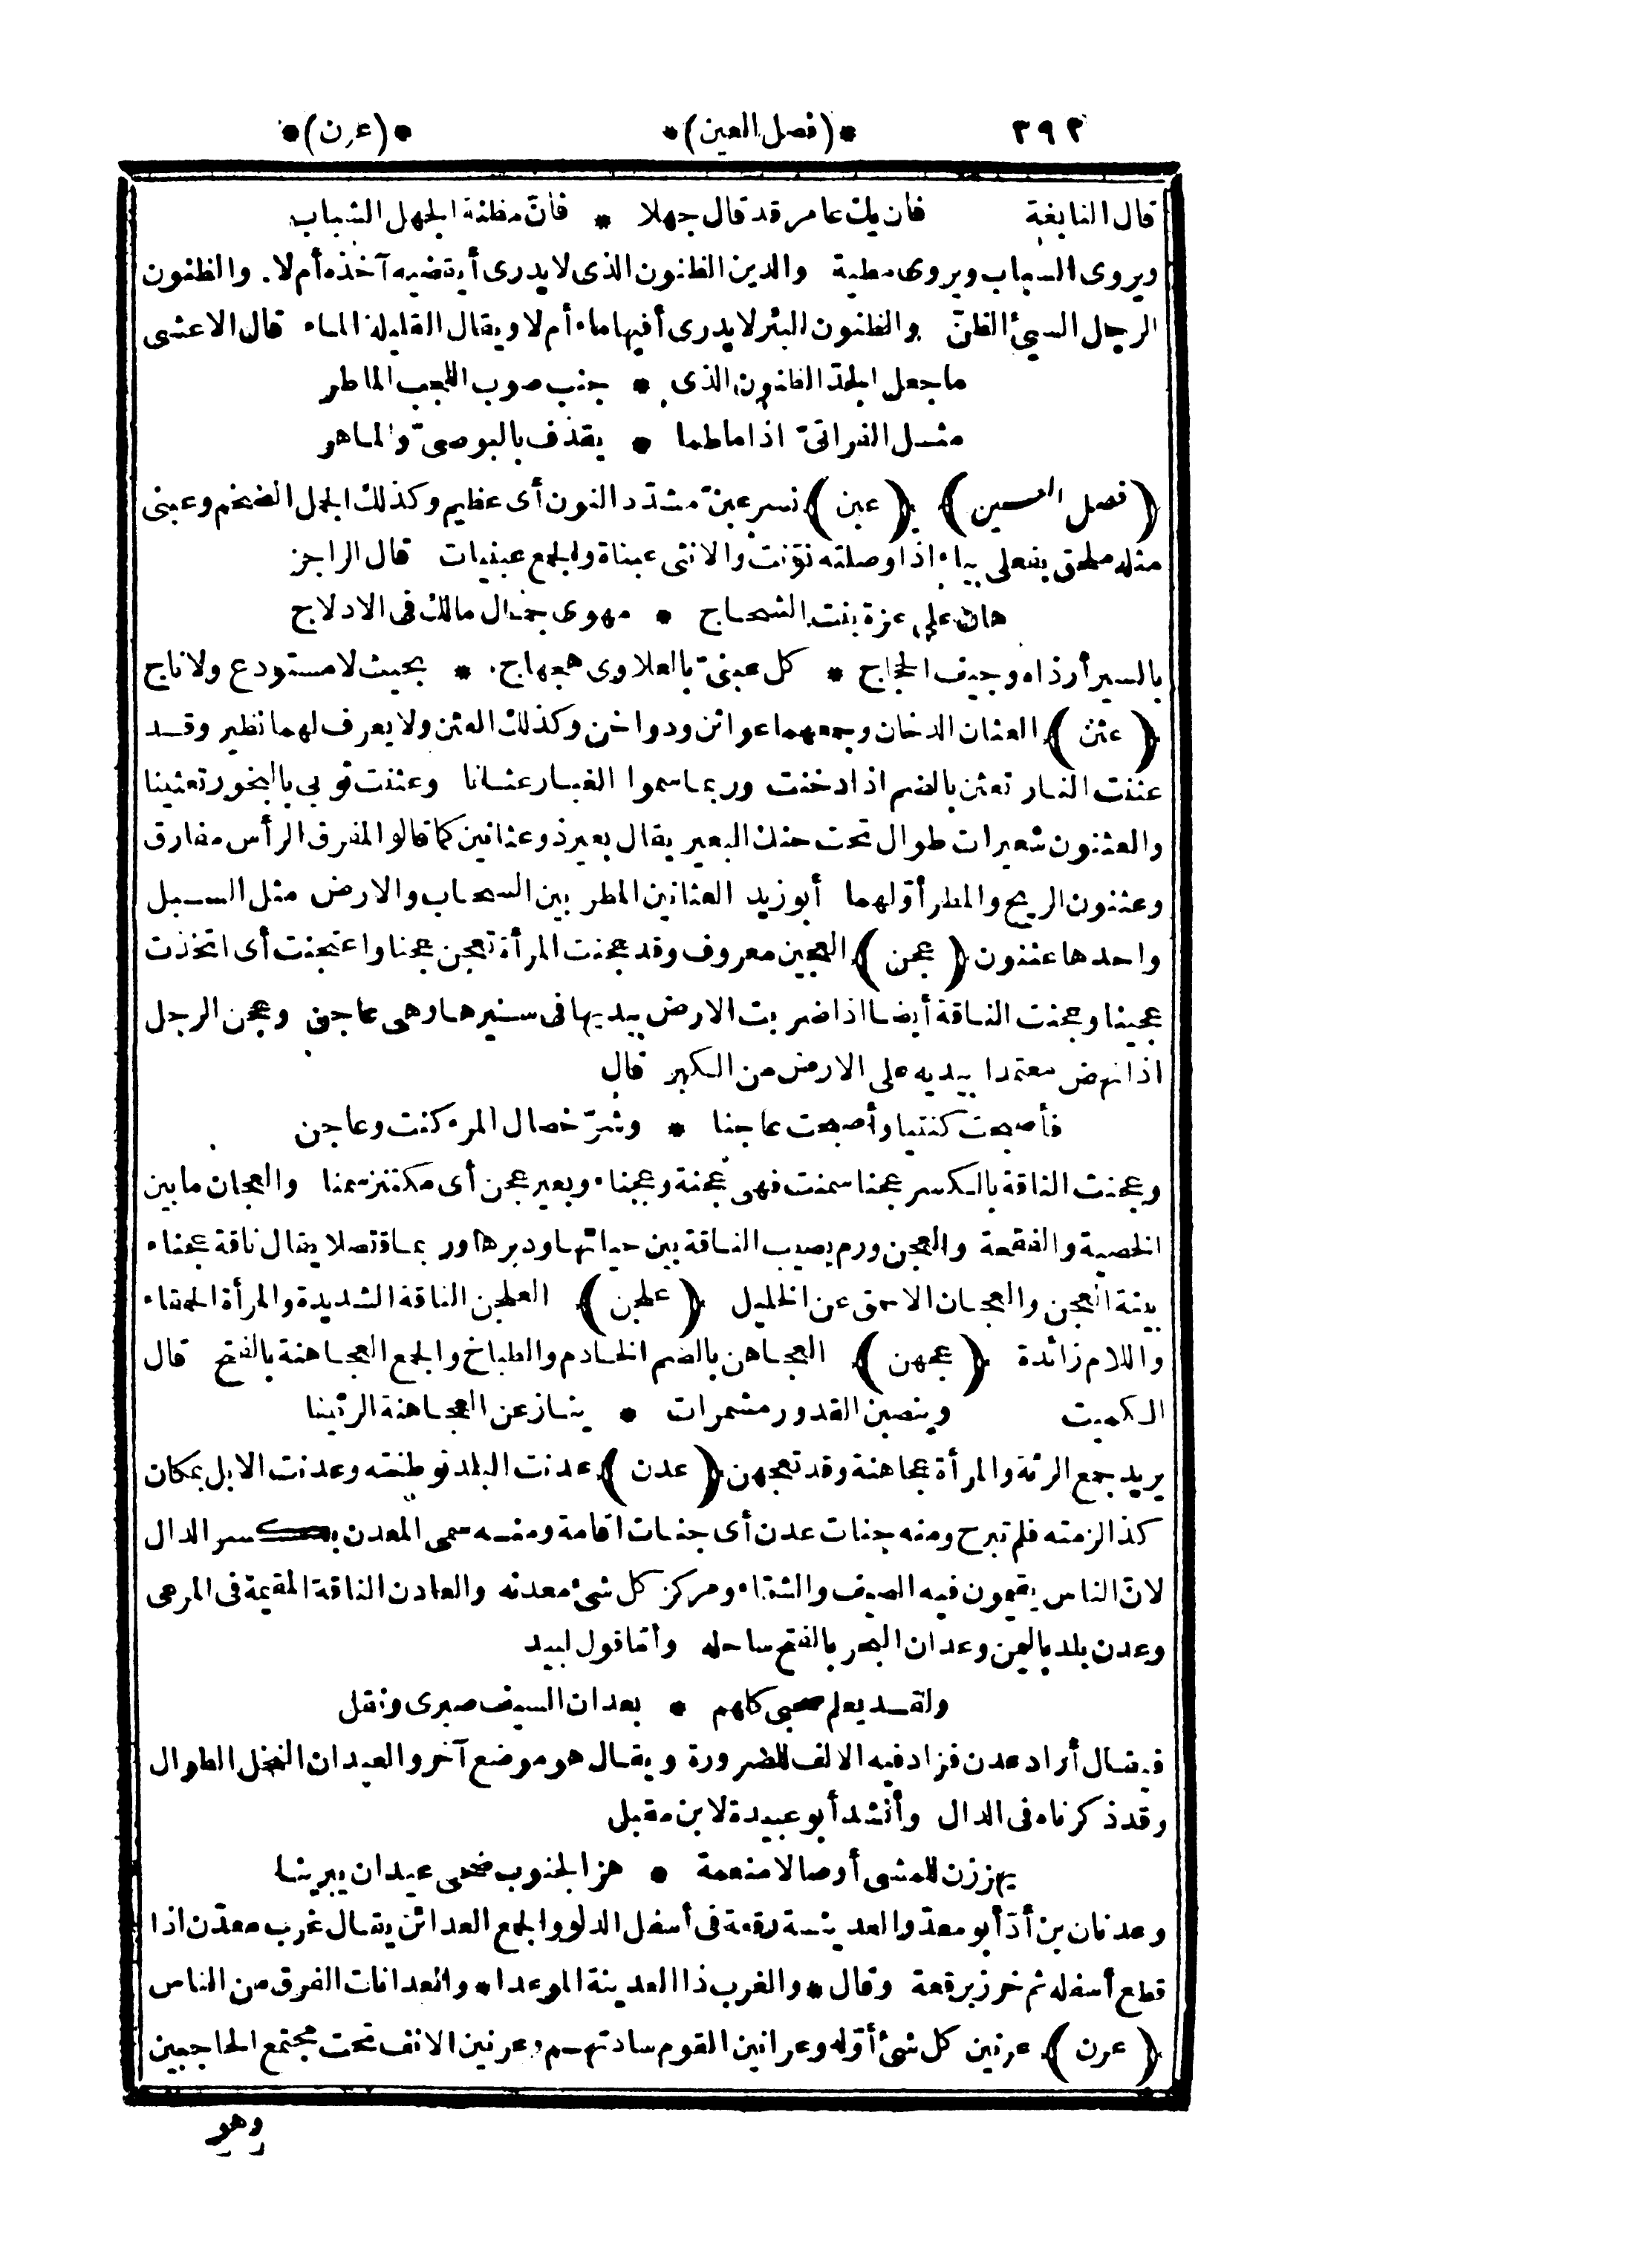 ٣٩٢ *(فصل العين)* *(عرن)*
قال النابغة فان يك عامر قد قال جهلا * فانّ مظنة الجهل الشباب
ويروى السباب ويروى مطية والدين الظنون الذى لا يدرى أيقضيه آخذه أم لا والظنون
الرجل السيئ الظنّ والظنون البئر لا يدرى أفيها ماء أم لا ويقال القليلة الماء قال الاعشى
ما جعل الجدّ الظنون الذى * جنب صوب اللجب الماطر
مثل الفراتىّ اذا ما طما * يقذف بالبوصىّ والماهر
﴿فصل العين﴾ ﴿عبن﴾ نسر عبنّ مشدّد النون أى عظيم وكذلك الجمل الضخم وعبنى
مثله ملحق بفعلى بياء اذا وصلته نوّنت والانثى عبناة والجمع عبنيات قال الراجز
هان على عزة بنت الشحاج * مهوى جمال مالك فى الادلاج
بالسير أرذاه وجيف الحجاج * كل عبنىّ بالعلاوى هجهاج * بحيث لا مستودع ولا ناج
﴿عثن﴾ العثان الدخان وجمعهما عواثن ودواخن وكذلك العثن ولا يعرف لهما نظير وقد
عثنت النار تعثن بالضم اذا دخنت وربما سموا الغبار عثانا وعثنت ثوبى بالبخور تعثينا
والعثنون شعيرات طوال تحت حنك البعير يقال بعير ذو عثانين كما قالوا لمفرق الرأس مفارق
وعثنون الريح والمطر أوّلهما أبو زيد العثانين المطر بين السحاب والارض مثل السبل
واحدها عثنون ﴿عجن﴾ العجين معروف وقد عجنت المرأة تعجن عجنا واعتجنت أى اتخذت
عجينا وعجنت الناقة أيضا اذا ضربت الارض بيديها فى سيرها وهى عاجن وعجن الرجل
اذا نهض معتمدا بيديه على الارض من الكبر قال
فأصبحت كنتيا وأصبحت عاجنا * وشرّ خصال المرء كنت وعاجن
وعجنت الناقة بالكسر عجنا سمنت فهى عجنة وعجناء وبعير عجن أى مكتنز سمنا والعجان ما بين
الخصية والفقحة والعجن ورم يصيب الناقة بين حيائها ودبرها وربما اتصلا يقال ناقة عجناء
بينة العجن والعجان الاحمق عن الخليل ﴿علجن﴾ العلجن الناقة الشديدة والمرأة الحمقاء
واللام زائدة ﴿عجهن﴾ العجاهن بالضم الخادم والطباخ والجمع العجاهنة بالفتح قال
الكميت وينصبن القدور مشمرات * ينازعن العجاهنة الرئينا
يريد جمع الرئة والمرأة عجاهنة وقد تعجهن ﴿عدن﴾ عدنت البلد توطنته وعدنت الابل بمكان
كذا لزمته فلم تبرح ومنه جنات عدن أى جنات اقامة ومنه سمى المعدن بكسر الدال
لانّ الناس يقيمون فيه الصيف والشتاء ومركز كل شئ معدنه والعادن الناقة المقيمة فى المرعى
وعدن بلد باليمن وعدان البحر بالفتح ساحله وأمّا قول لبيد
ولقد يعلم صحبى كلهم * بعدان السيف صبرى ونقل
فيقال أراد عدن فزاد فيه الالف للضرورة ويقال هو موضع آخر والعيدان النخل الطوال
وقد ذكرناه فى الدال وأنشد أبو عبيدة لابن مقبل
يهززن للمشى أوصالا منعمة * هز الجنوب ضحى عيدان يبرينا
وعدنان بن أدّ أبو معدّ والعدينة رقعة فى أسفل الدلو والجمع العدائن يقال غرب معدّن اذا
قطع أسفله ثم خرز برقعة وقال * والغرب ذا العدينة الموعدا * والعدانات الفرق من الناس
﴿عرن﴾ عرنين كل شئ أوّله وعرانين القوم سادتهم وعرنين الانف تحت مجتمع الحاجبين
وهو